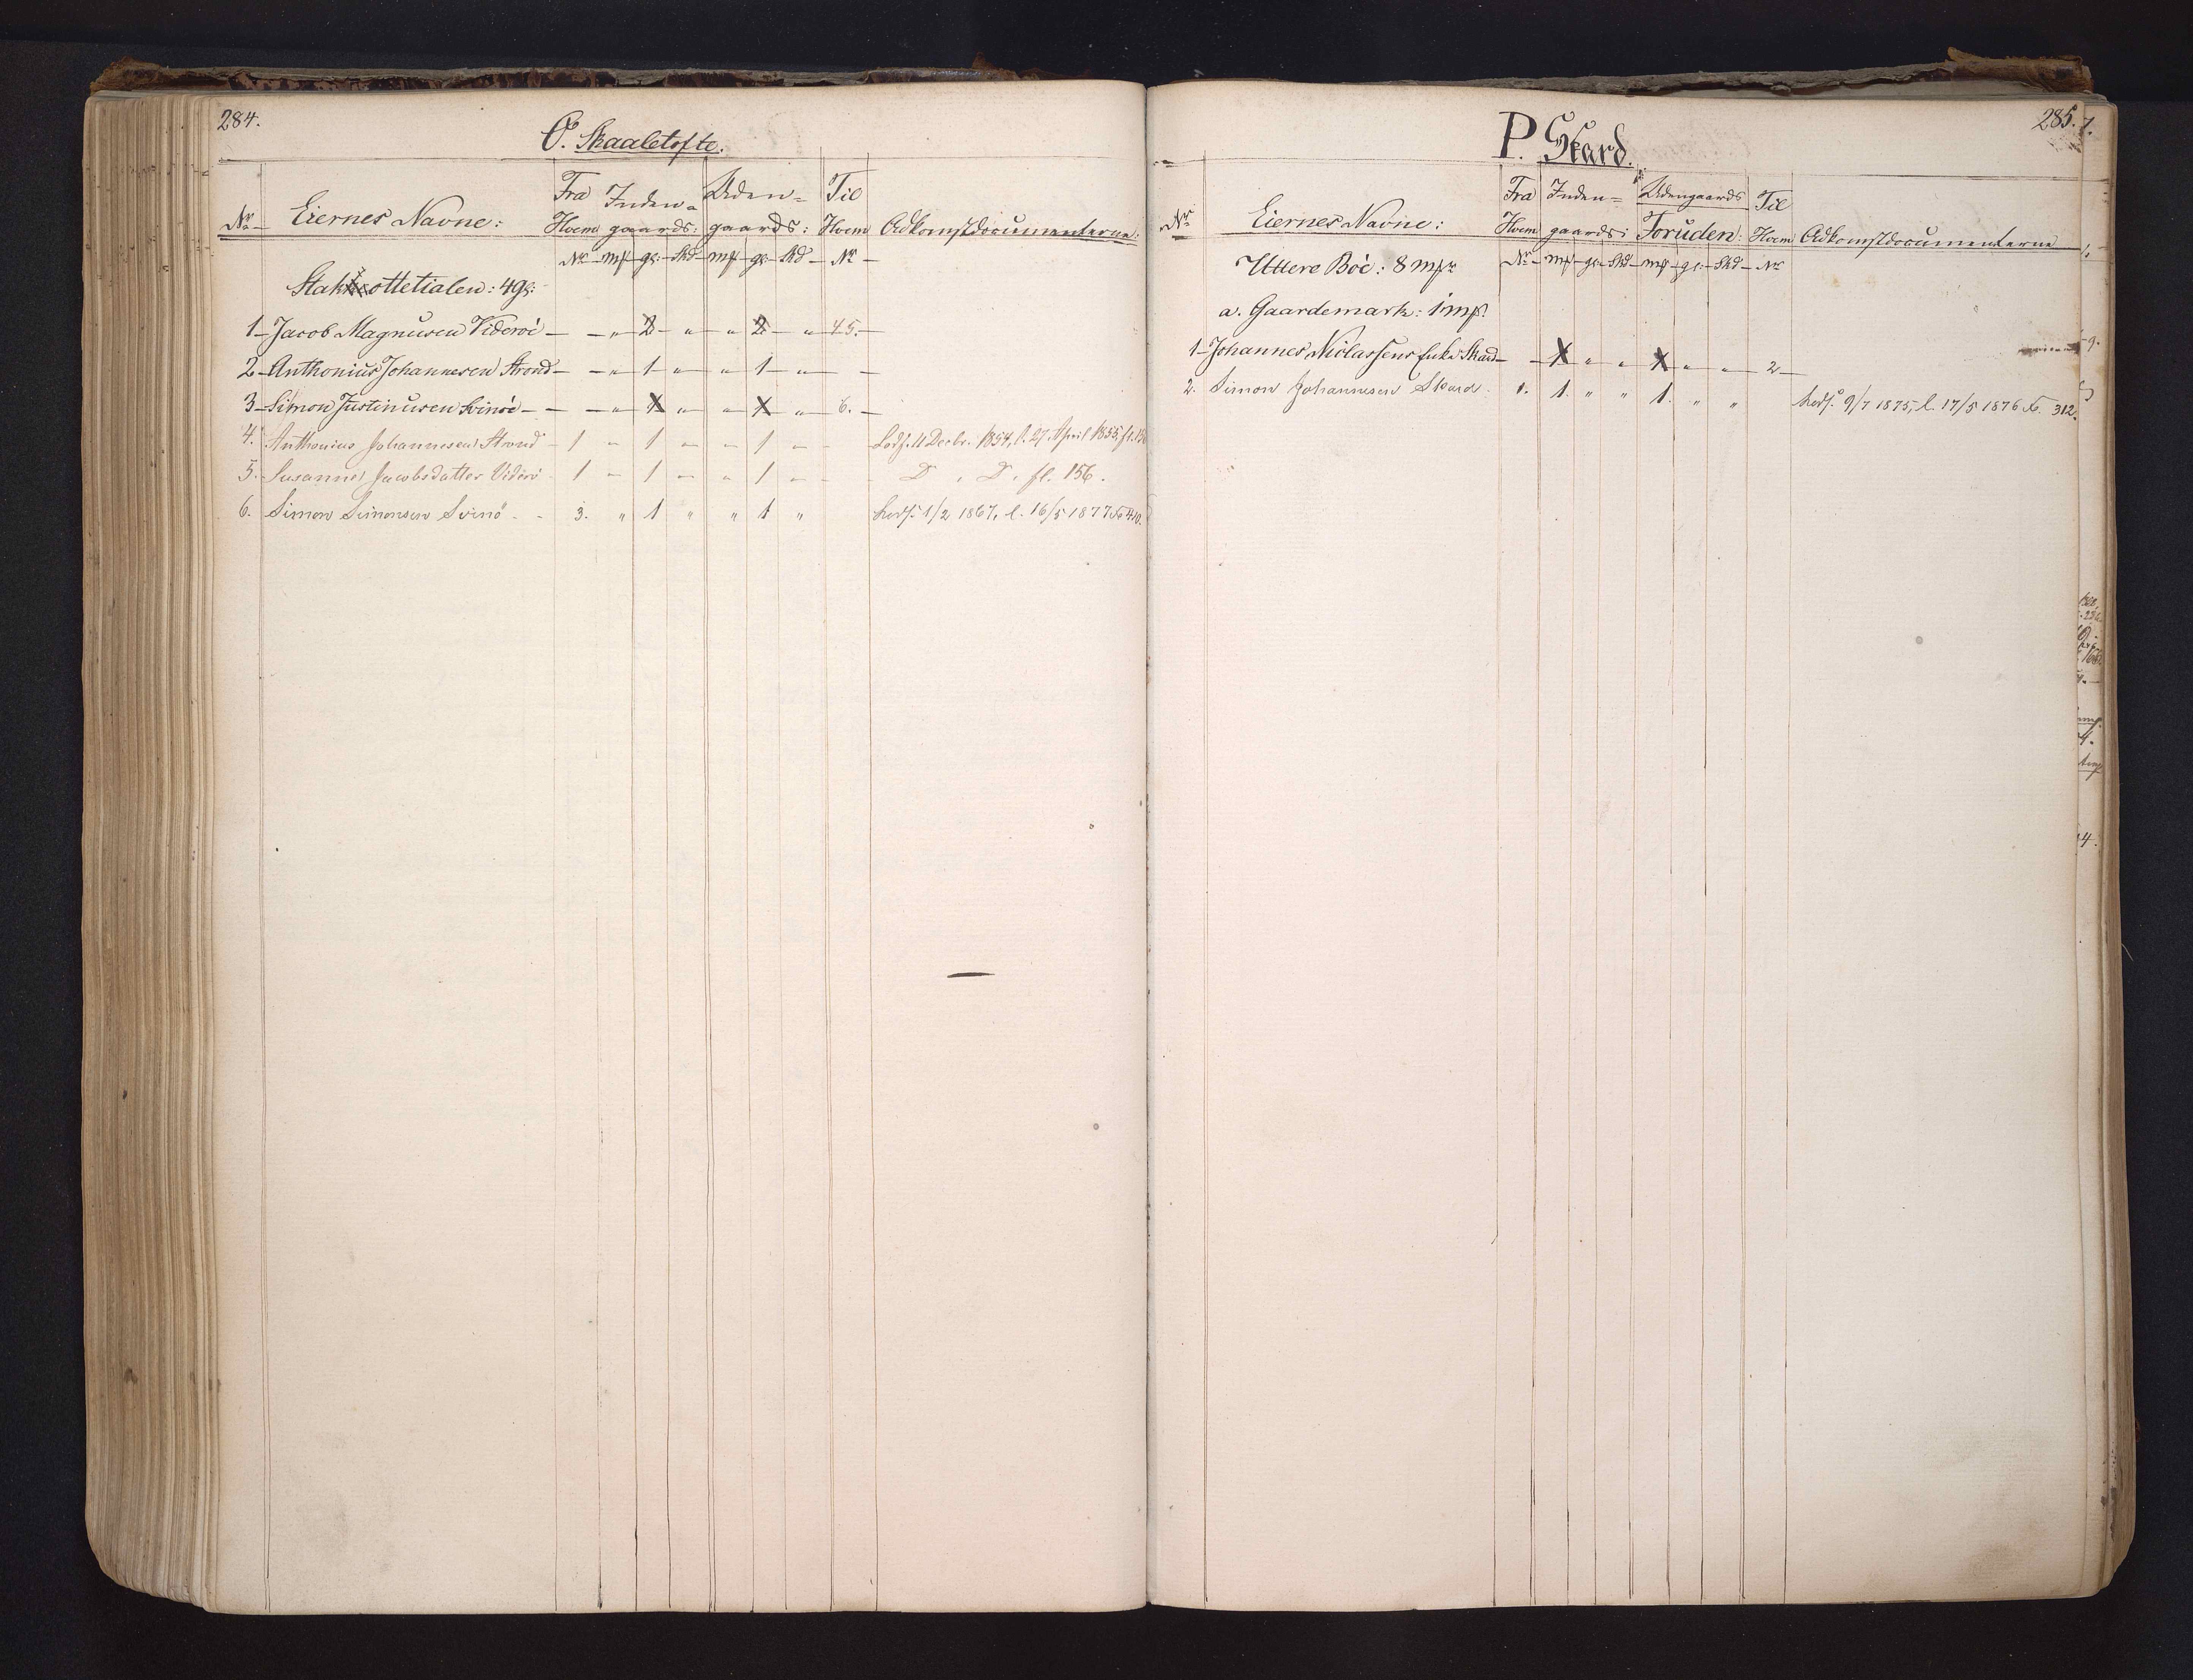 284.
O. Skaaletofte.
Nr. Eiernes Navne: Fra Hvem Inden-gaards: Uden-gaards: Til Hvem Adkomstdocumenterne:
Nr mk gl: Skd mk gl: Skd Nr
Stak ottetialen: 4 gl:
1 Jacob Magnusen Videroe - " 2 " " 2 " 4 5.
2 Anthonius Johannesen Strond - " 1 " " 1 "
3 Simon Justinusen Svinöe - " 1 " " 1 " 6.
4. Anthonius Johannesen Strond 1 " 1 " " 1 " Lodf. 11 Decbr. 1854, l. 27 April 1855, fl. 156
5. Susanne Jacobsdatter Viderö 1 " 1 " " 1 " D . D. fl. 156.
6. Simon Simonsen Svinö 3. " 1 " " 1 " Lodf. 1/2 1867, l. 16/5 1877 Fo 410.
285.
P. Skard.
Nr. Eiernes Navne: Fra Hvem Inden-gaards: Udengaards Foruden: Til Hvem Adkomstdocumenterne
Nr mk gl: Skd mk gl: Skd Nr
Uttere Böe: 8 mkr
a. Gaardemark: 1 mk.
1 Johannes Niclassens Enke Skard - 1 " " 1 " " 2
2. Simon Johannesen Skard 1. 1. " " 1. " " Lodf. 9/7 1875, l. 17/5 1876 Fo. 312.